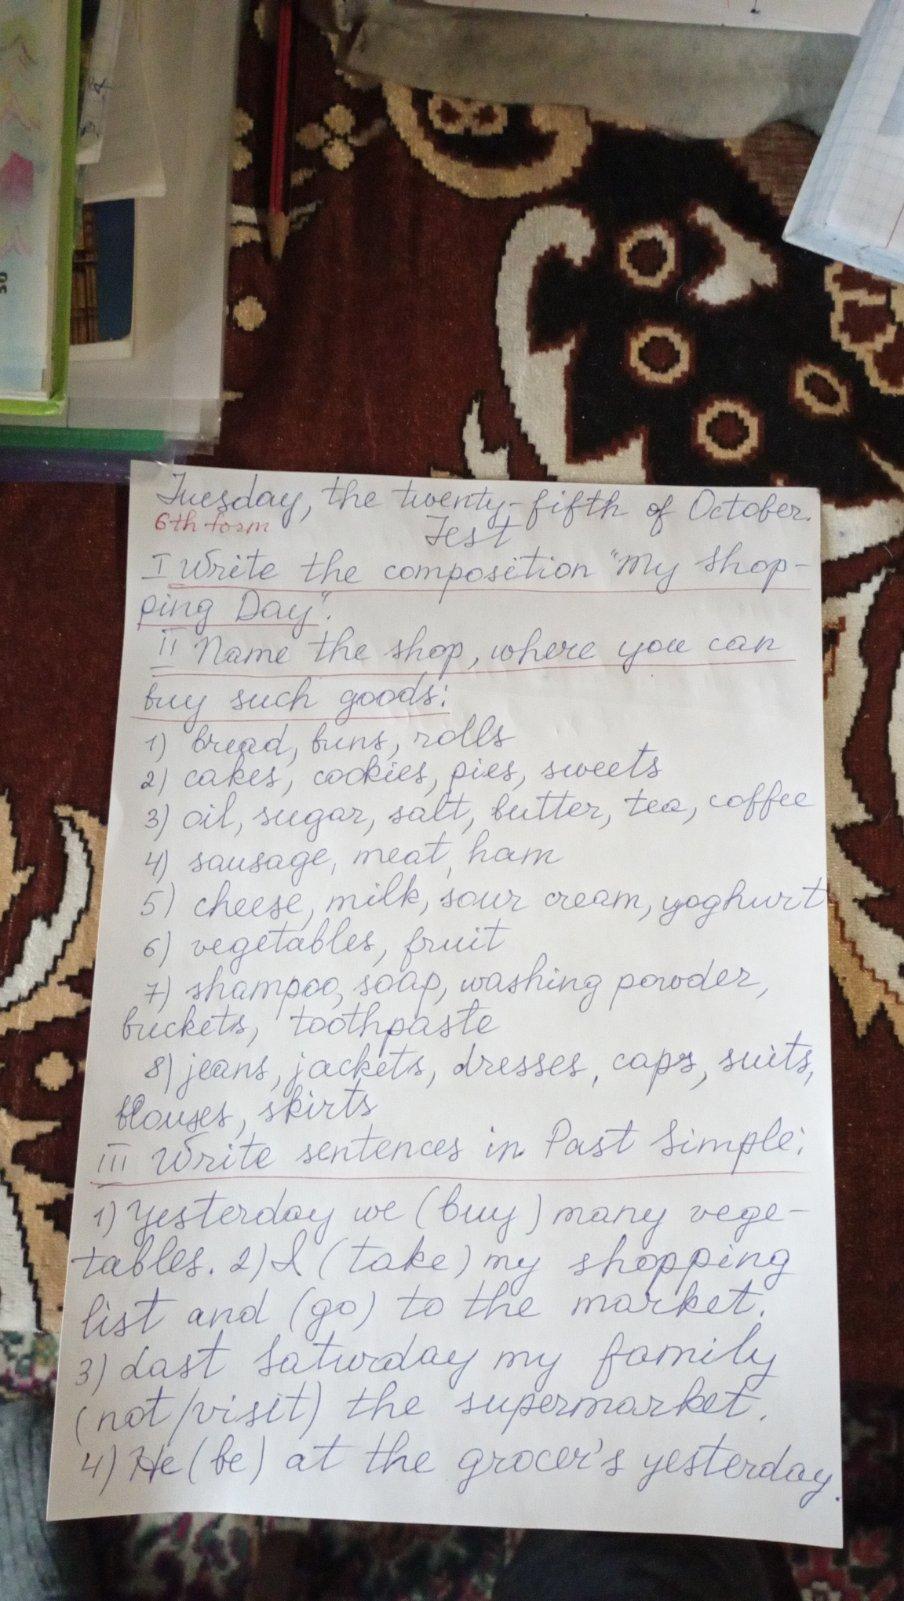 Tuesday, the twenty-fifth of October.
6th form
Test
I Write the composition "My Shop-
ping Day".
II Name the shop, where you can
buy such goods:
1) bread, buns, rolls
2) cakes, cookies, pies, sweets
3) oil, sugar, salt, butter, tea, coffee
4) sausage, meat, ham
5) cheese, milk, sour cream, yoghurt
6) vegetables, fruit
7) shampoo, soap, washing powder,
buckets, toothpaste
8) jeans, jackets, dresses, caps, suits,
blouses, skirts
III Write sentences in Past Simple:
1) Yesterday we (buy) many vege-
tables. 2) I (take) my shopping
list and (go) to the market.
3) Last Saturday my family
(not/visit) the supermarket.
4) He (be) at the grocer's yesterday.